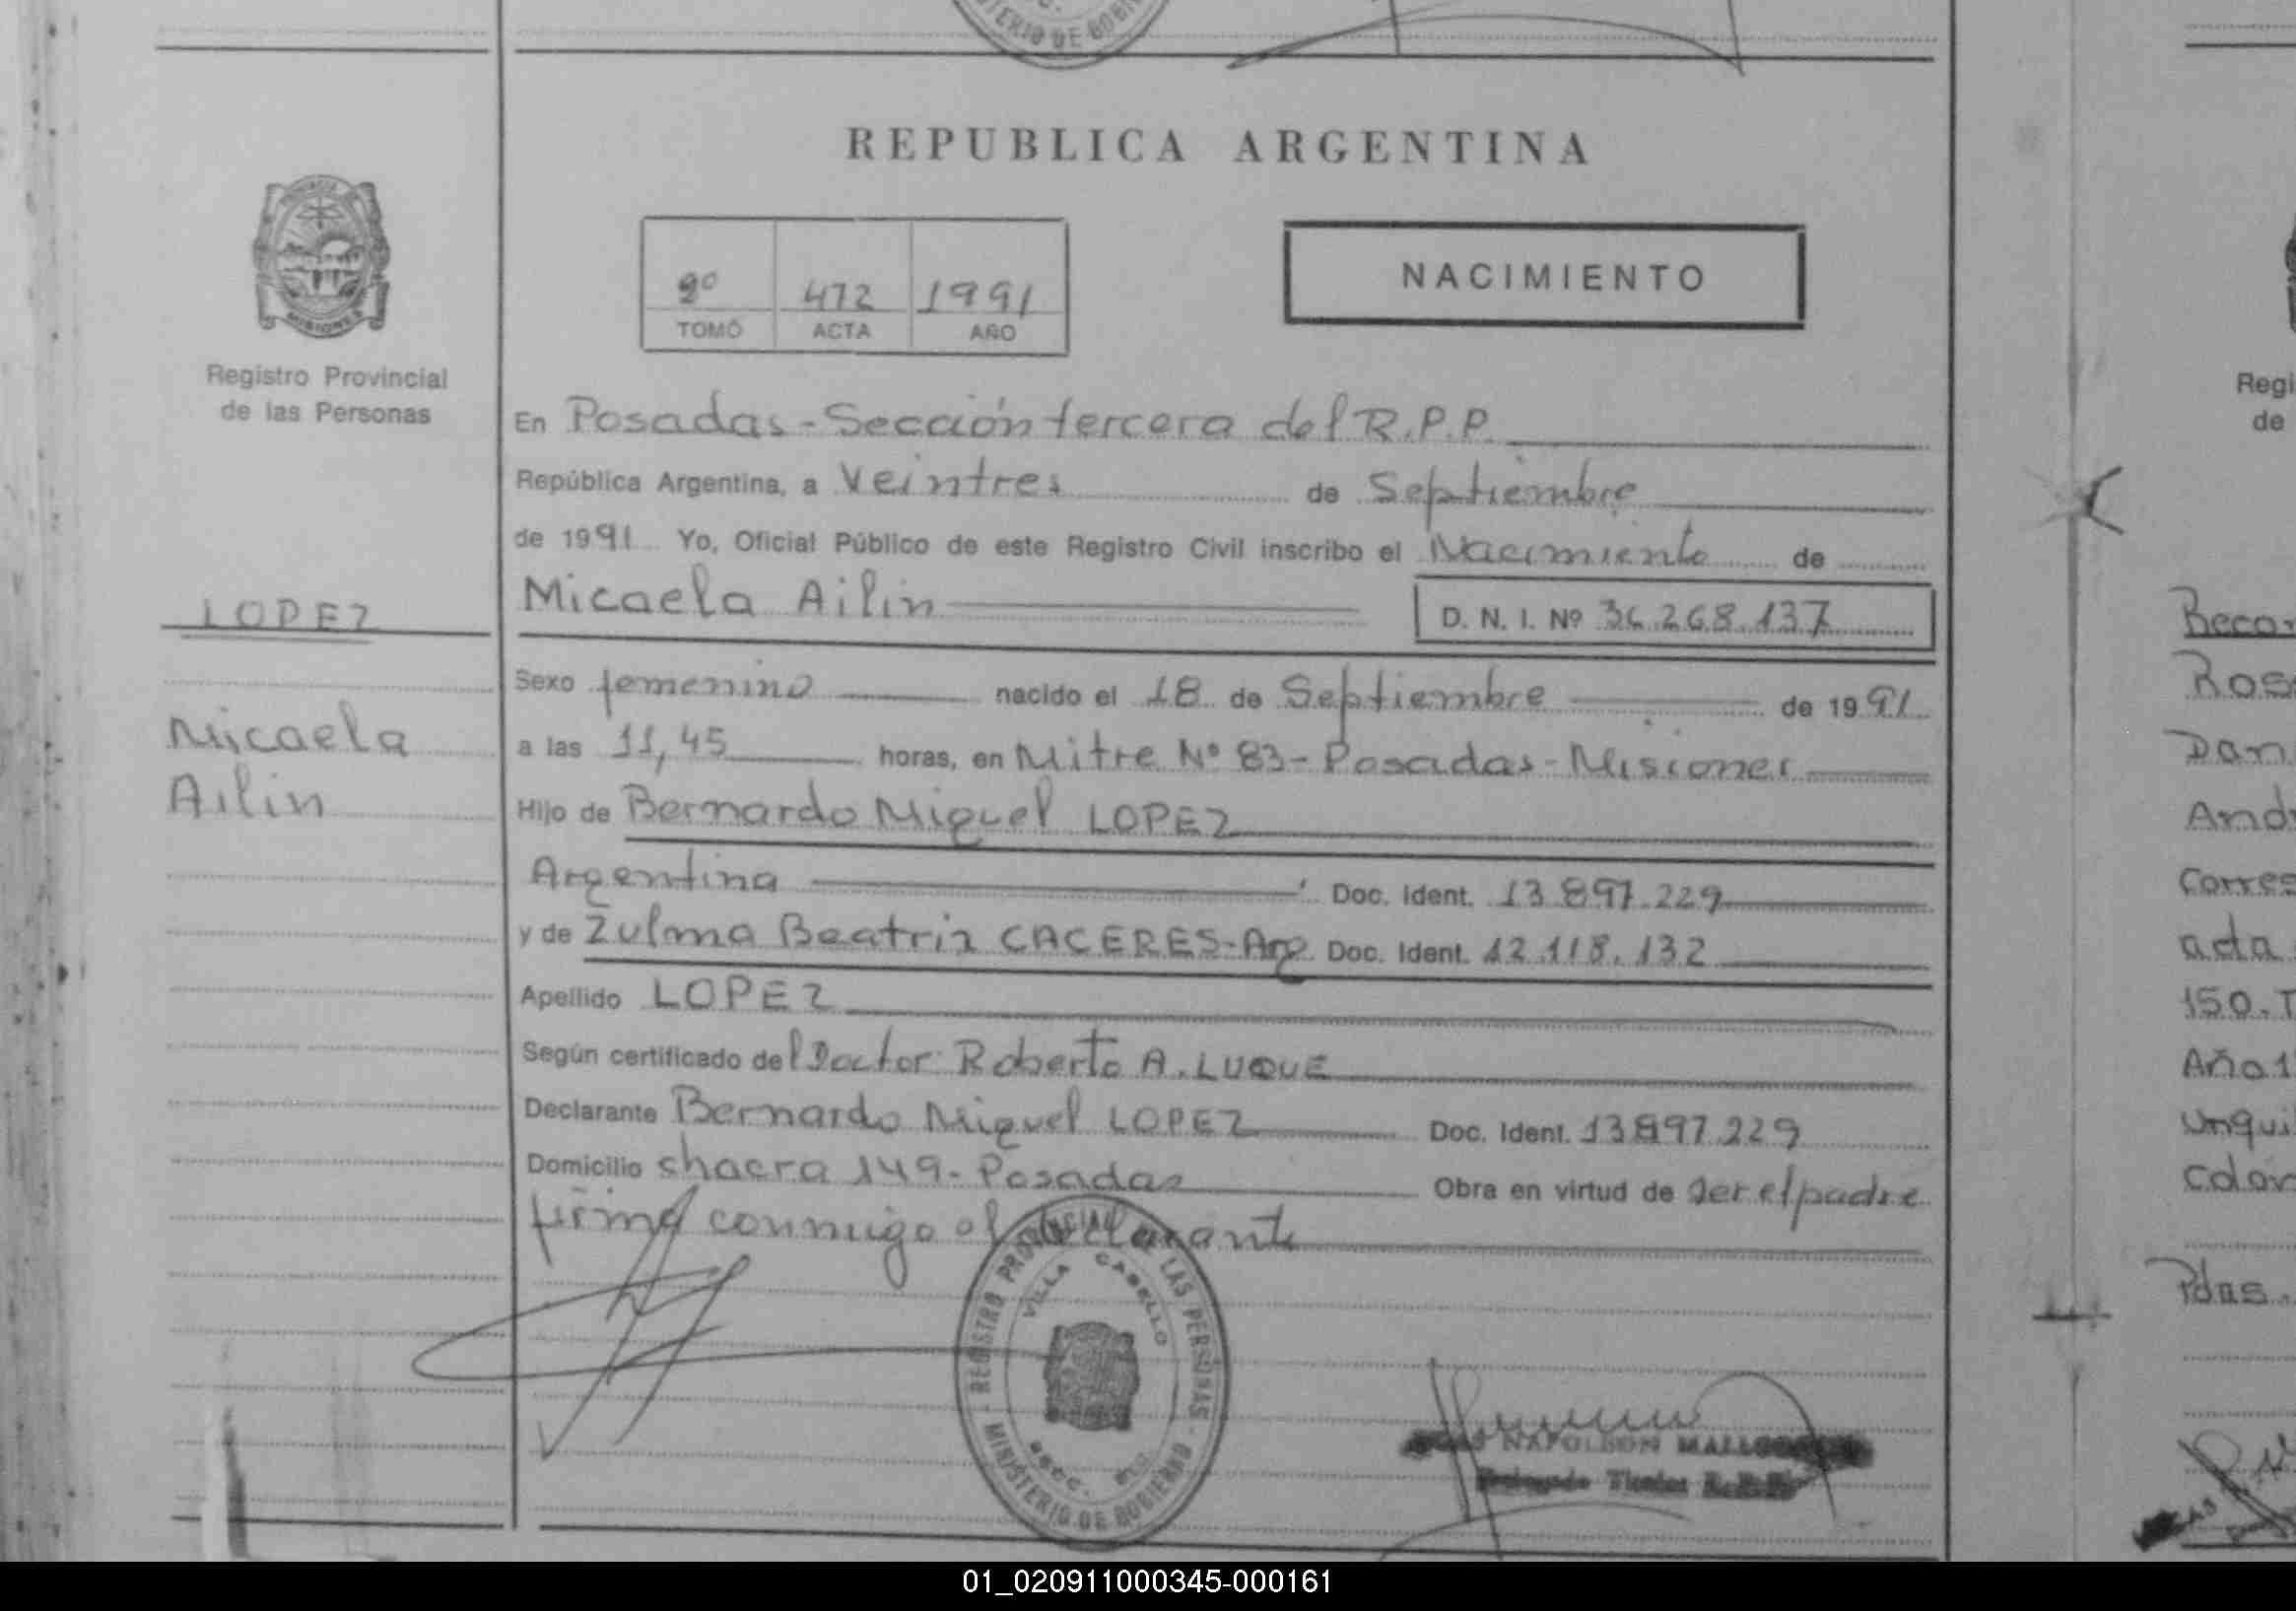 MINISTERIO DE GOBIERNO
REPUBLICA ARGENTINA
MISIONES
Registro Provincial
de las Personas
2º 472 1991
TOMO ACTA AÑO
NACIMIENTO
En Posadas - Sección tercera del R.P.P.
República Argentina, a Veintres de Septiembre
de 1991 Yo, Oficial Público de este Registro Civil inscribo el Nacimiento de
LOPEZ
Micaela Ailin
D. N. I. Nº 36.268.137
Sexo femenino nacido el 18 de Septiembre de 1991
Micaela
Ailin
a las 11,45 horas, en Mitre Nº 83 - Posadas - Misiones
Hijo de Bernardo Miguel LOPEZ
Argentina Doc. Ident. 13.897.229
y de Zulma Beatriz CACERES - Arg Doc. Ident. 12.118.132
Apellido LOPEZ
Según certificado del Doctor Roberto A. LUQUE
Declarante Bernardo Miguel LOPEZ Doc. Ident. 13.897.229
Domicilio chacra 149 - Posadas Obra en virtud de ser el padre
firma conmigo el declarante
REGISTRO PROVINCIAL DE LAS PERSONAS
VILLA CABELLO
MINISTERIO DE GOBIERNO
NAPOLEON
Titular R.P.P.
Regi
de
Reco
Ros
Dan
And
Corres
acta
150. T
Año 1
Urqui
Colon
Pdas.
01_020911000345-000161